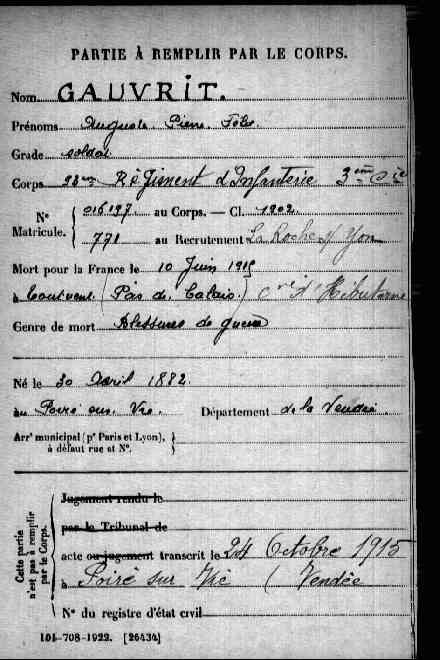 PARTIE À REMPLIR PAR LE CORPS.
Nom GAUVRIT.
Prénoms Auguste Pierre
Grade soldat
Corps 93me Régiment d'Infanterie 3ème Cie
N° Matricule. 016197. au Corps. — Cl. 1902.
771 au Recrutement La Roche s/ Yon
Mort pour la France le 10 Juin 1915
à Toutvent (Pas de Calais.) d'Hébuterne
Genre de mort Blessures de guerre
Né le 30 Avril 1882.
à Poiré sur Vie. Département de la Vendée.
Arrt municipal (pr Paris et Lyon),
à défaut rue et N°.
Cette partie n'est pas à remplir par le Corps.
Jugement rendu le
par le Tribunal de
acte ou jugement transcrit le 24 Octobre 1915
à Poiré sur Vie (Vendée
N° du registre d'état civil
101-708-1922. [26434]